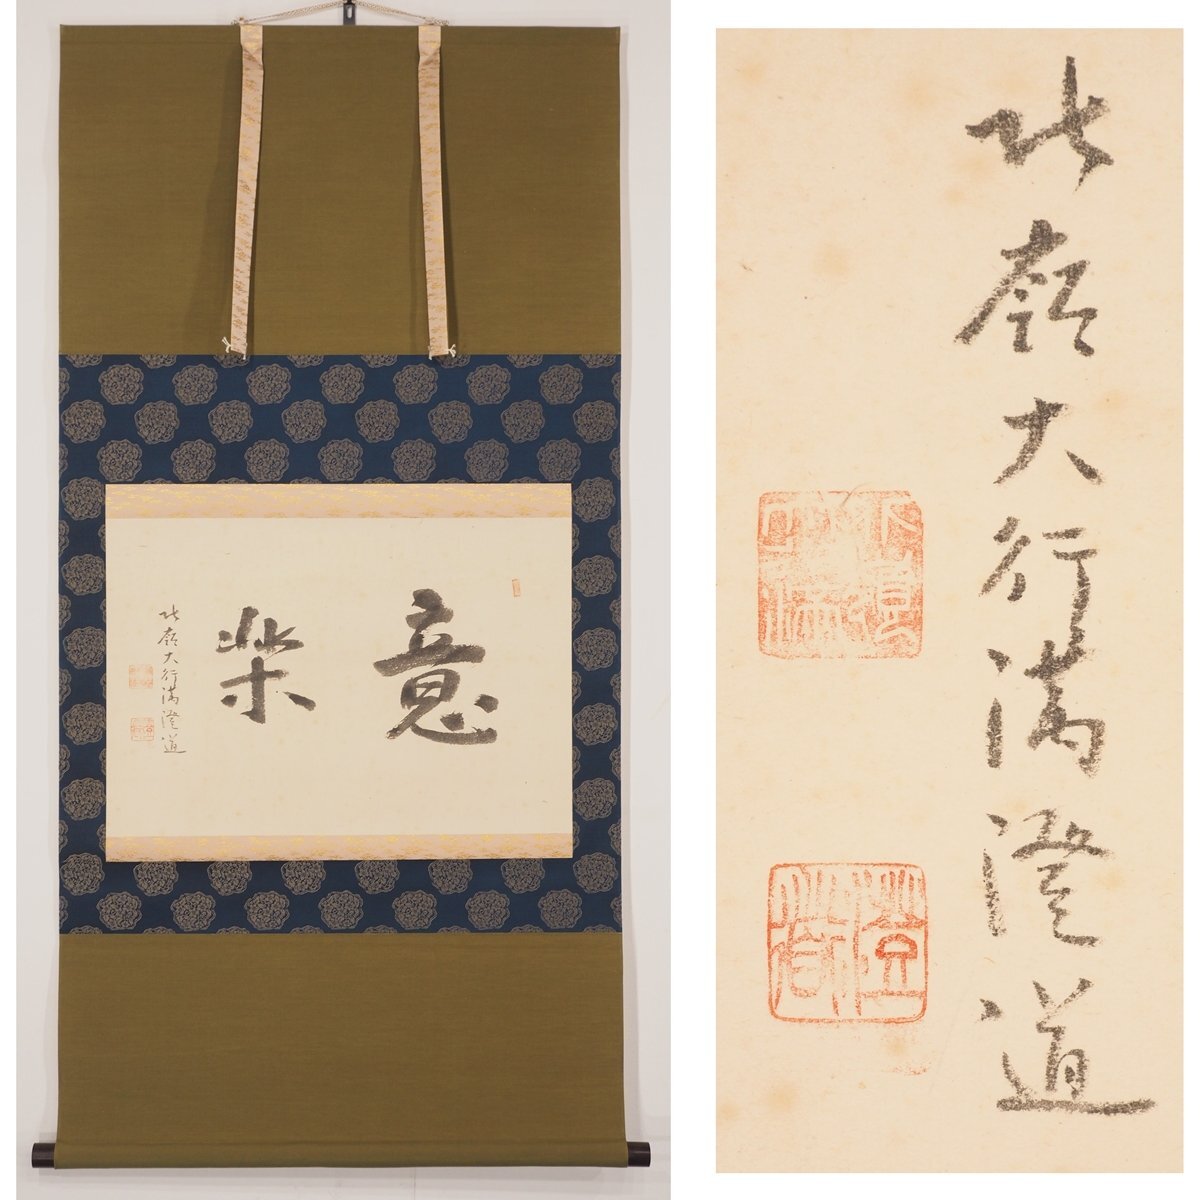 意楽
比嶺大行満澄道
比嶺大行満澄道